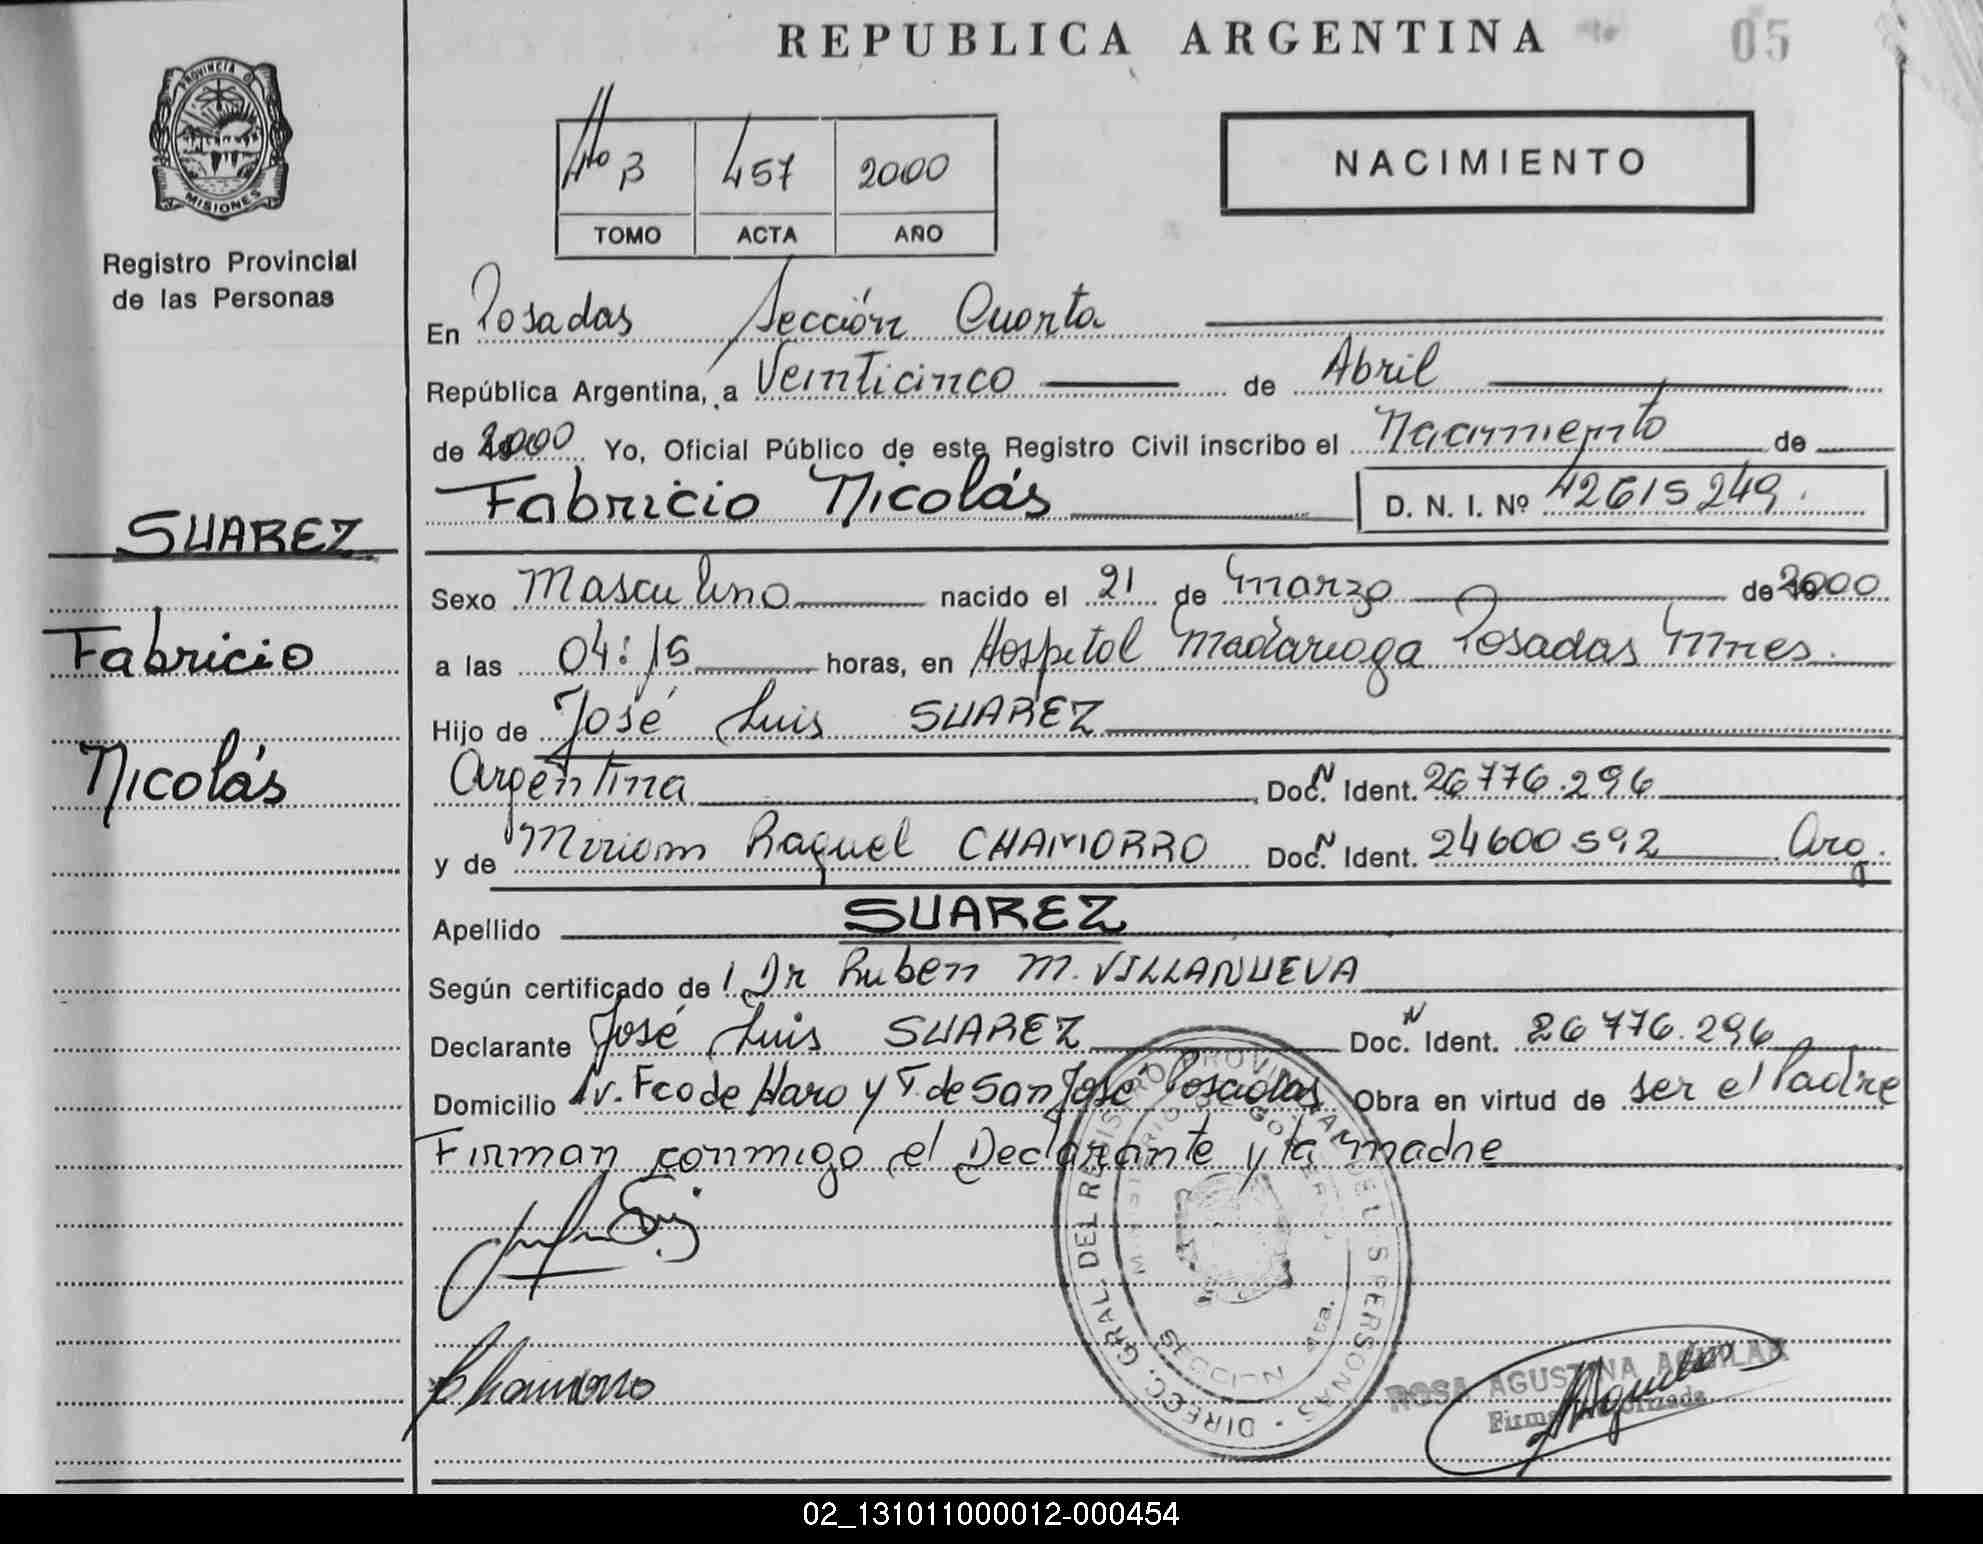 REPUBLICA ARGENTINA
05
PROVINCIA D
MISIONES
Registro Provincial
de las Personas
4to B 457 2000
TOMO ACTA AÑO
NACIMIENTO
En Posadas Sección Cuarta
República Argentina, a Veinticinco de Abril
de 2000 Yo, Oficial Público de este Registro Civil inscribo el Nacimiento de
Fabricio Nicolás D. N. I. Nº 42615249.
SUAREZ
Fabricio
Nicolás
Sexo Masculino nacido el 21 de marzo de 2000
a las 04:15 horas, en Hospital Madariaga Posadas Mnes.
Hijo de José Luis SUAREZ
Argentina Doc. N Ident. 26776.296
y de Miriam Raquel CHAMORRO Doc. N Ident. 24600592 Arg.
Apellido SUAREZ
Según certificado de l Dr Ruben M. VILLANUEVA
Declarante José Luis SUAREZ Doc. N Ident. 26776.296
Domicilio Av. Fco de Haro y T. de San José Posadas Obra en virtud de ser el Padre
Firman conmigo el Declarante y la madre
Chamorro
DIREC. GRAL. DEL REGISTRO PROVINCIAL DE LAS PERSONAS
MINISTERIO DE GOBIERNO
SECCION 4ta.
ROSA AGUSTINA AGUILAR
Firma Autorizada
02_131011000012-000454